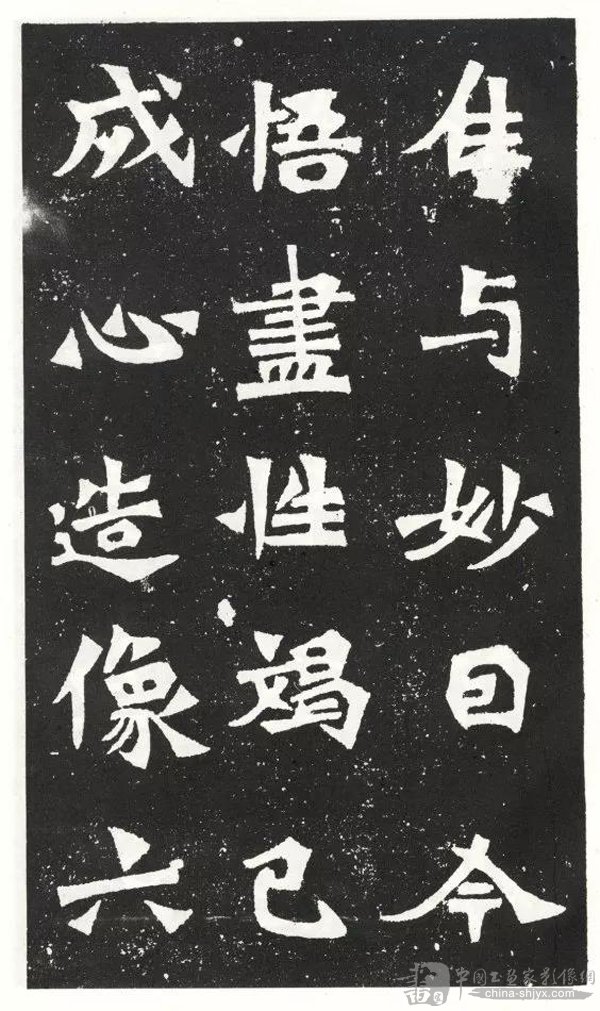 隹与妙日今
悟盡性竭己
成心造像六
中国书画家影像網
china-shjyx.com